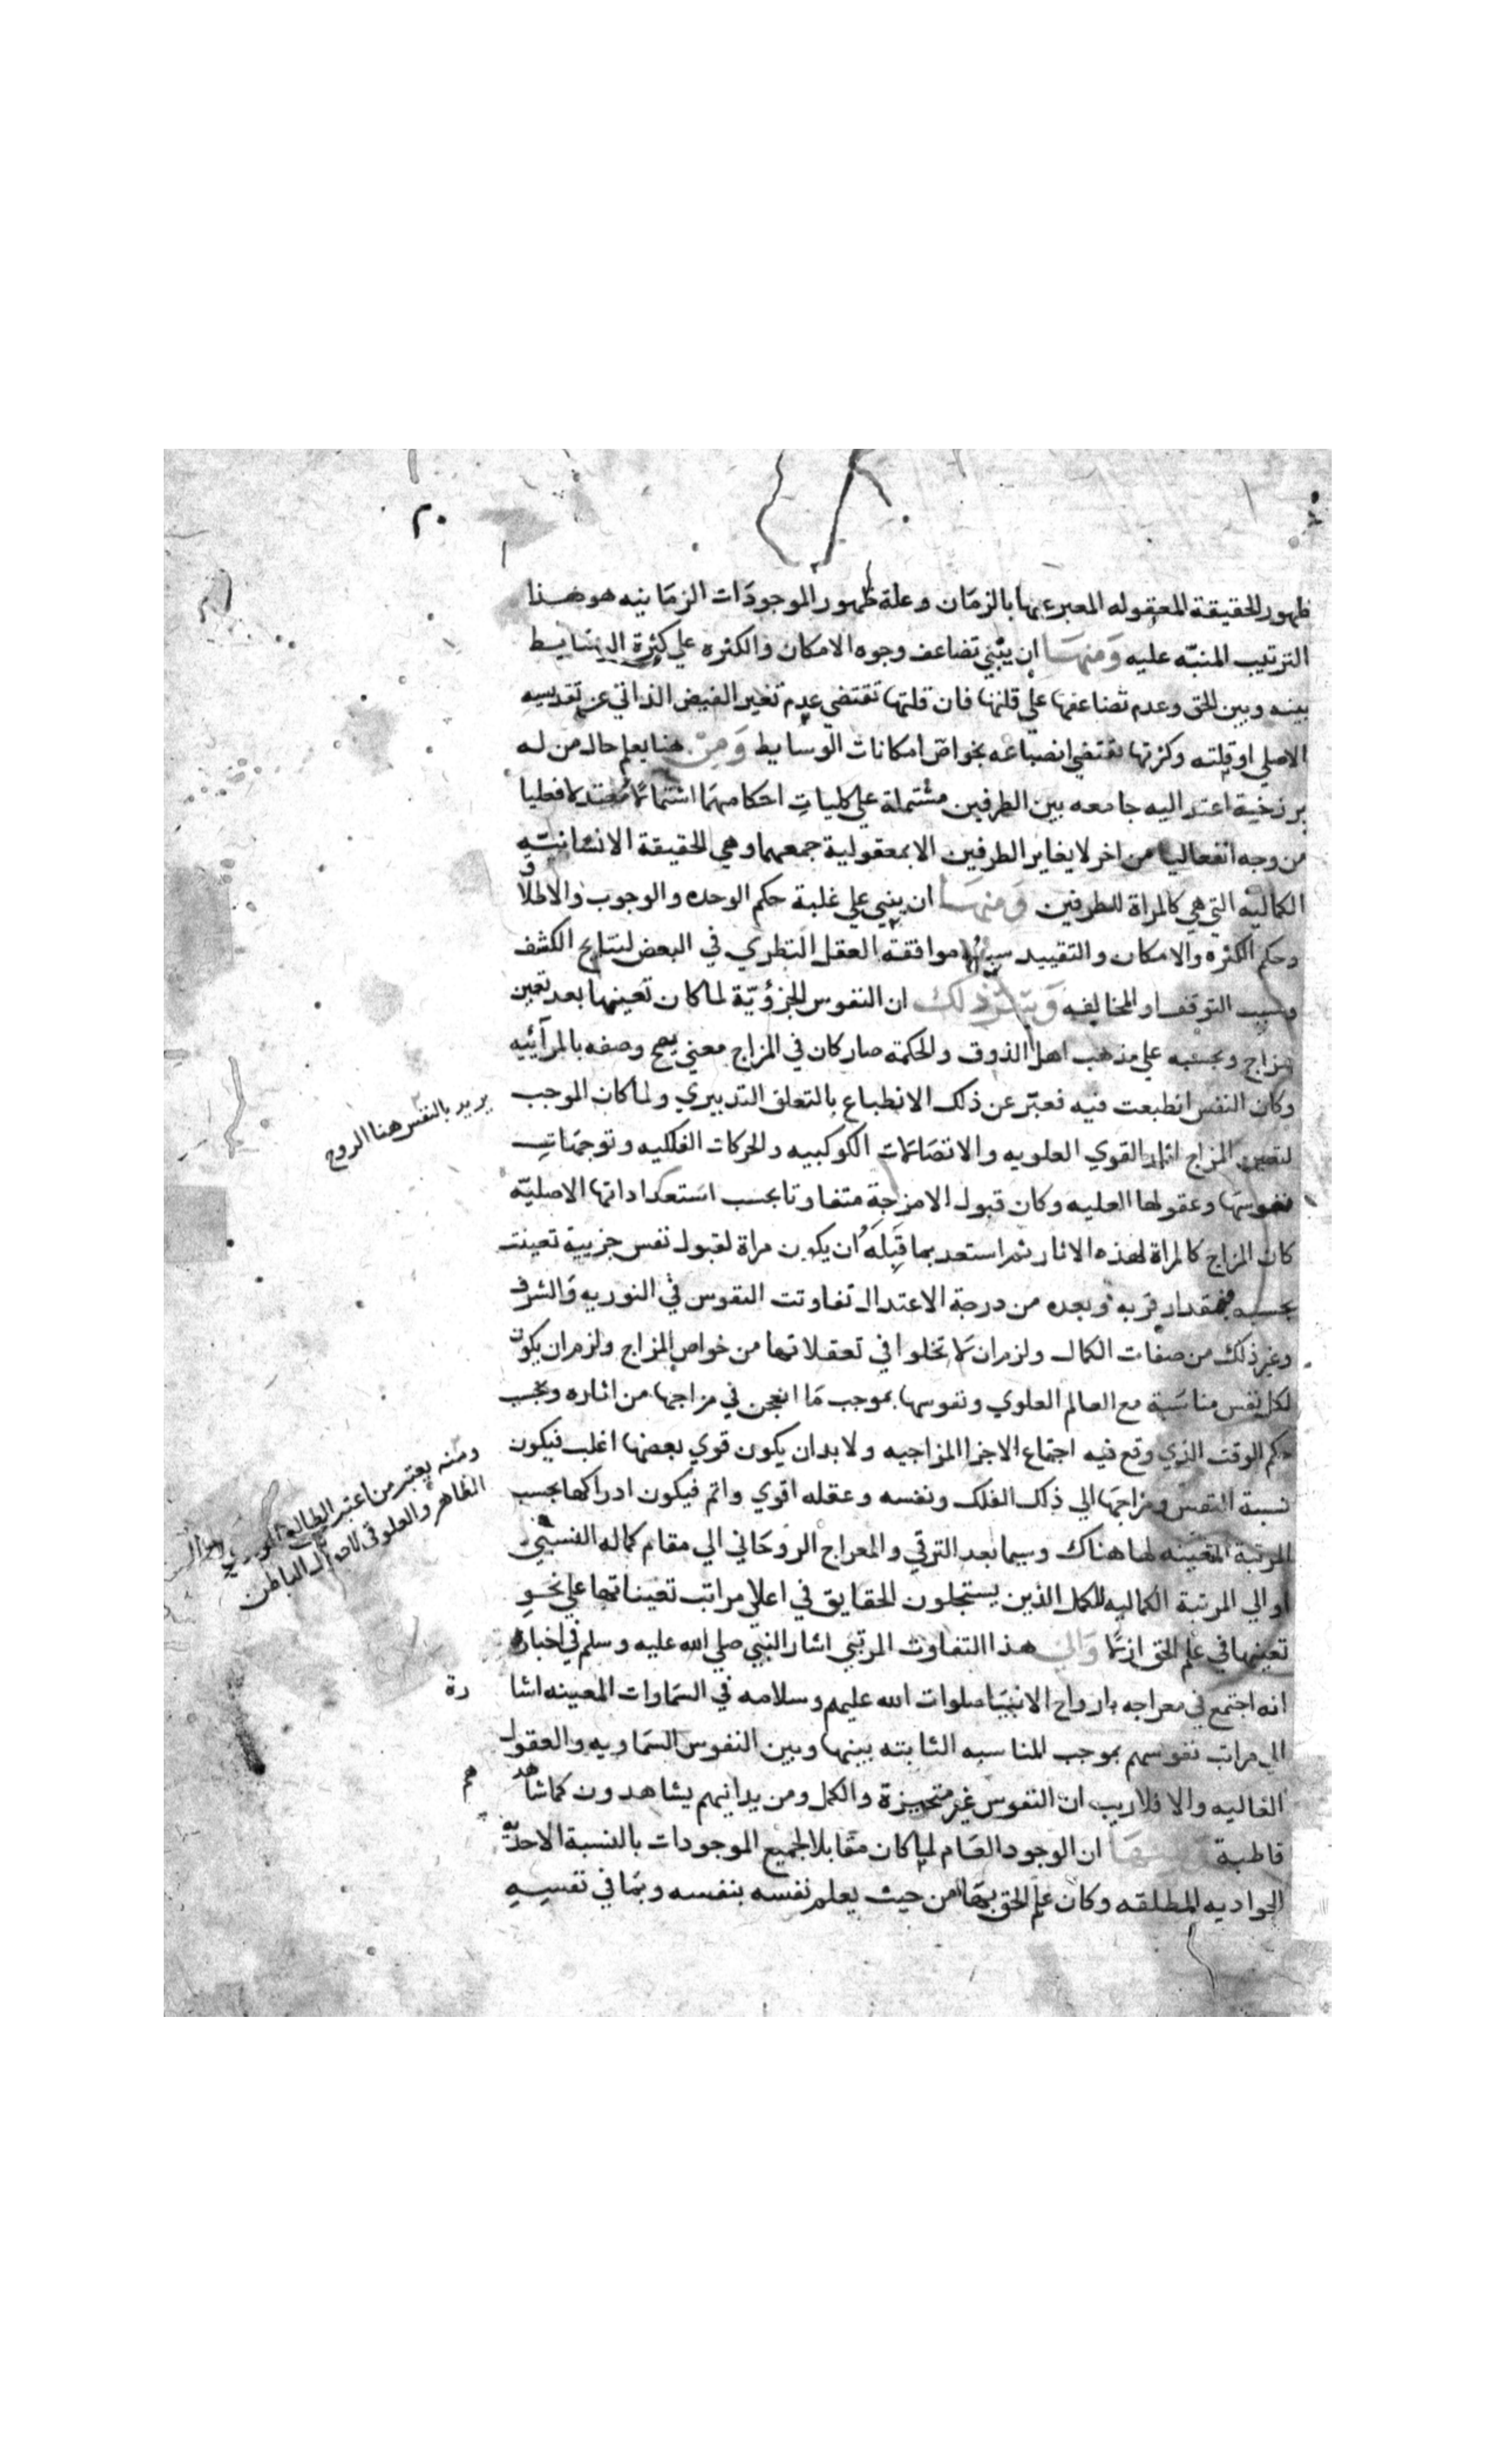 ٢٠
ظهور الحقيقة المعقوله المعبر عنها بالزمان وعلة ظهور الموجودات الزمانيه هو هذا
الترتيب المنبّه عليه ومنها ان يبتني تضاعف وجوه الامكان والكثره علي كثرة الوسايط
بينه وبين الحق وعدم تضاعفها علي قلتها فان قلتها تقتضي عدم تغير الفيض الذاتي عن تقديسه
الاصلي او قلته وكثرتها تقتضي انصباغه بخواص امكانات الوسايط ومن هنا يعلم حال من له
برزخية اعتداليه جامعه بين الطرفين مشتملة علي كليات احكامهما اشتمالا معتدلا فعليا
من وجه انفعاليا من اخر لا يغاير الطرفين الا بمعقولية جمعهما وهي الحقيقة الانسانيّه
الكماليه التي هي كالمراة للطرفين ومنها ان يبني علي غلبة حكم الوحده والوجوب والاطلاق
وحكم الكثره والامكان والتقييد موافقة العقل النظري في البعض لنتايج الكشف
وسبب التوقف او المخالفه ذلك ان النفوس الجزؤيّة لما كان تعينها بعد تعين
المزاج وبحسبه علي مذهب اهل الذوق والحكمة صار كان في المزاج معني يصح وصفه بالمرآئيه
وكان النفس انطبعت فيه فعبّر عن ذلك الانطباع بالتعلق التدبيري ولما كان الموجب
لتعين المزاج اثار القوي العلويه والاتصالات الكوكبيه والحركات الفلكيه وتوجهات
نفوسها وعقولها العليه وكان قبول الامزجة متفاوتا بحسب استعداداتها الاصليّه
كان المزاج كالمراة لهذه الاثار ثم استعد بما قَبِلَهُ ان يكون مراة لقبول نفس جزيية تعينت
بحسبه فبمقدار قربه وبعده من درجة الاعتدال تفاوتت النفوس في النوريه والشرف
وغير ذلك من صفات الكمال ولزم ان لا تخلوا في تعقلاتها من خواص المزاج ولزم ان يكون
لكل نفس مناسبة مع العالم العلوي ونفوسها بموجب ما انعجن في مزاجها من اثاره وبحسب
حكم الوقت الذي وقع فيه اجتماع الاجزا المزاجيه ولا بد ان يكون قوي بعضها اغلب فيكون
نسبة النفس ومزاجها الي ذلك الفلك ونفسه وعقله اقوي واتم فيكون ادراكها بحسب
المرتبة المتعينه لها هناك وسيما بعد الترقي والمعراج الروحاني الي مقام كماله النسبي
او الي المرتبة الكماليه للكمل الذين يستجلون الحقايق في اعلي مراتب تعيناتها علي نحو
تعينها في علم الحق ازلا والي هذا التفاوت المرتبي اشار النبي صلي الله عليه وسلم في اخباره
انه اجتمع في معراجه بارواح الانبيا صلوات الله عليهم وسلامه في السماوات المعينه اشا
رة
الي مراتب نفوسهم بموجب المناسبه الثابته بينها وبين النفوس السماويه والعقول
العاليه والا فلا ريب ان النفوس غير متحيزة والكمل ومن يدانيهم يشاهدون كما شاهد
هم
قاطبة ومنها ان الوجود العام لما كان مقابلا لجميع الموجودات بالنسبة الاحديّه
الجواديه المطلقه وكان علم الحق بها من حيث يعلم نفسه بنفسه وبما في نفسه
يريد بالنفس هنا الروح
ومنه يعتبر من اعتبر الطالع
الظاهر والعلوقي الباطن